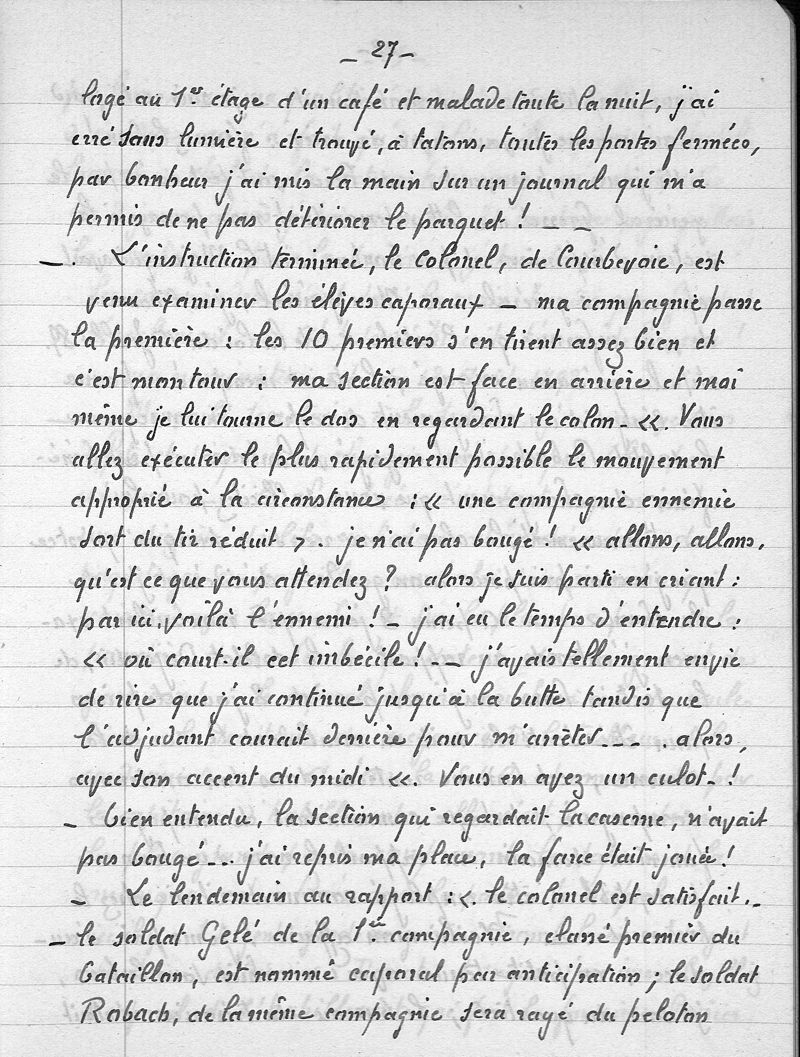 _ 27 _
logé au 1er étage d'un café et malade toute la nuit, j'ai
erré sans lumière et trouvé, à tatons, toutes les portes fermées,
par bonheur j'ai mis la main sur un journal qui m'a
permis de ne pas détériorer le parquet ! _ _
_ . L'instruction terminée, le Colonel, de Courbevoie, est
venu examiner les élèves caporaux _ ma compagnie passe
la première : les 10 premiers s'en tirent assez bien et
c'est mon tour : ma section est face en arrière et moi
même je lui tourne le dos en regardant le colon _ «. Vous
allez exécuter le plus rapidement possible le mouvement
approprié à la circonstance : « une compagnie ennemie
sort du tir réduit > . je n'ai pas bougé ! « allons, allons,
qu'est ce que vous attendez ? alors je suis parti en criant :
par ici, voilà l'ennemi ! _ j'ai eu le temps d'entendre :
« où court-il cet imbécile ! _ _ j'avais tellement envie
de rire que j'ai continué jusqu'à la butte tandis que
l'adjudant courait derrière pour m'arrêter _ _ _ . alors,
avec son accent du midi «. Vous en avez un culot _ !
_ bien entendu, la section qui regardait la caserne, n'avait
pas bougé _ .. j'ai repris ma place, la farce était jouée !
_ Le lendemain au rapport : «. le colonel est satisfait . _
_ le soldat Gelé de la 1re compagnie, classé premier du
bataillon, est nommé caporal par anticipation ; le soldat
Robach, de la même compagnie sera rayé du peloton